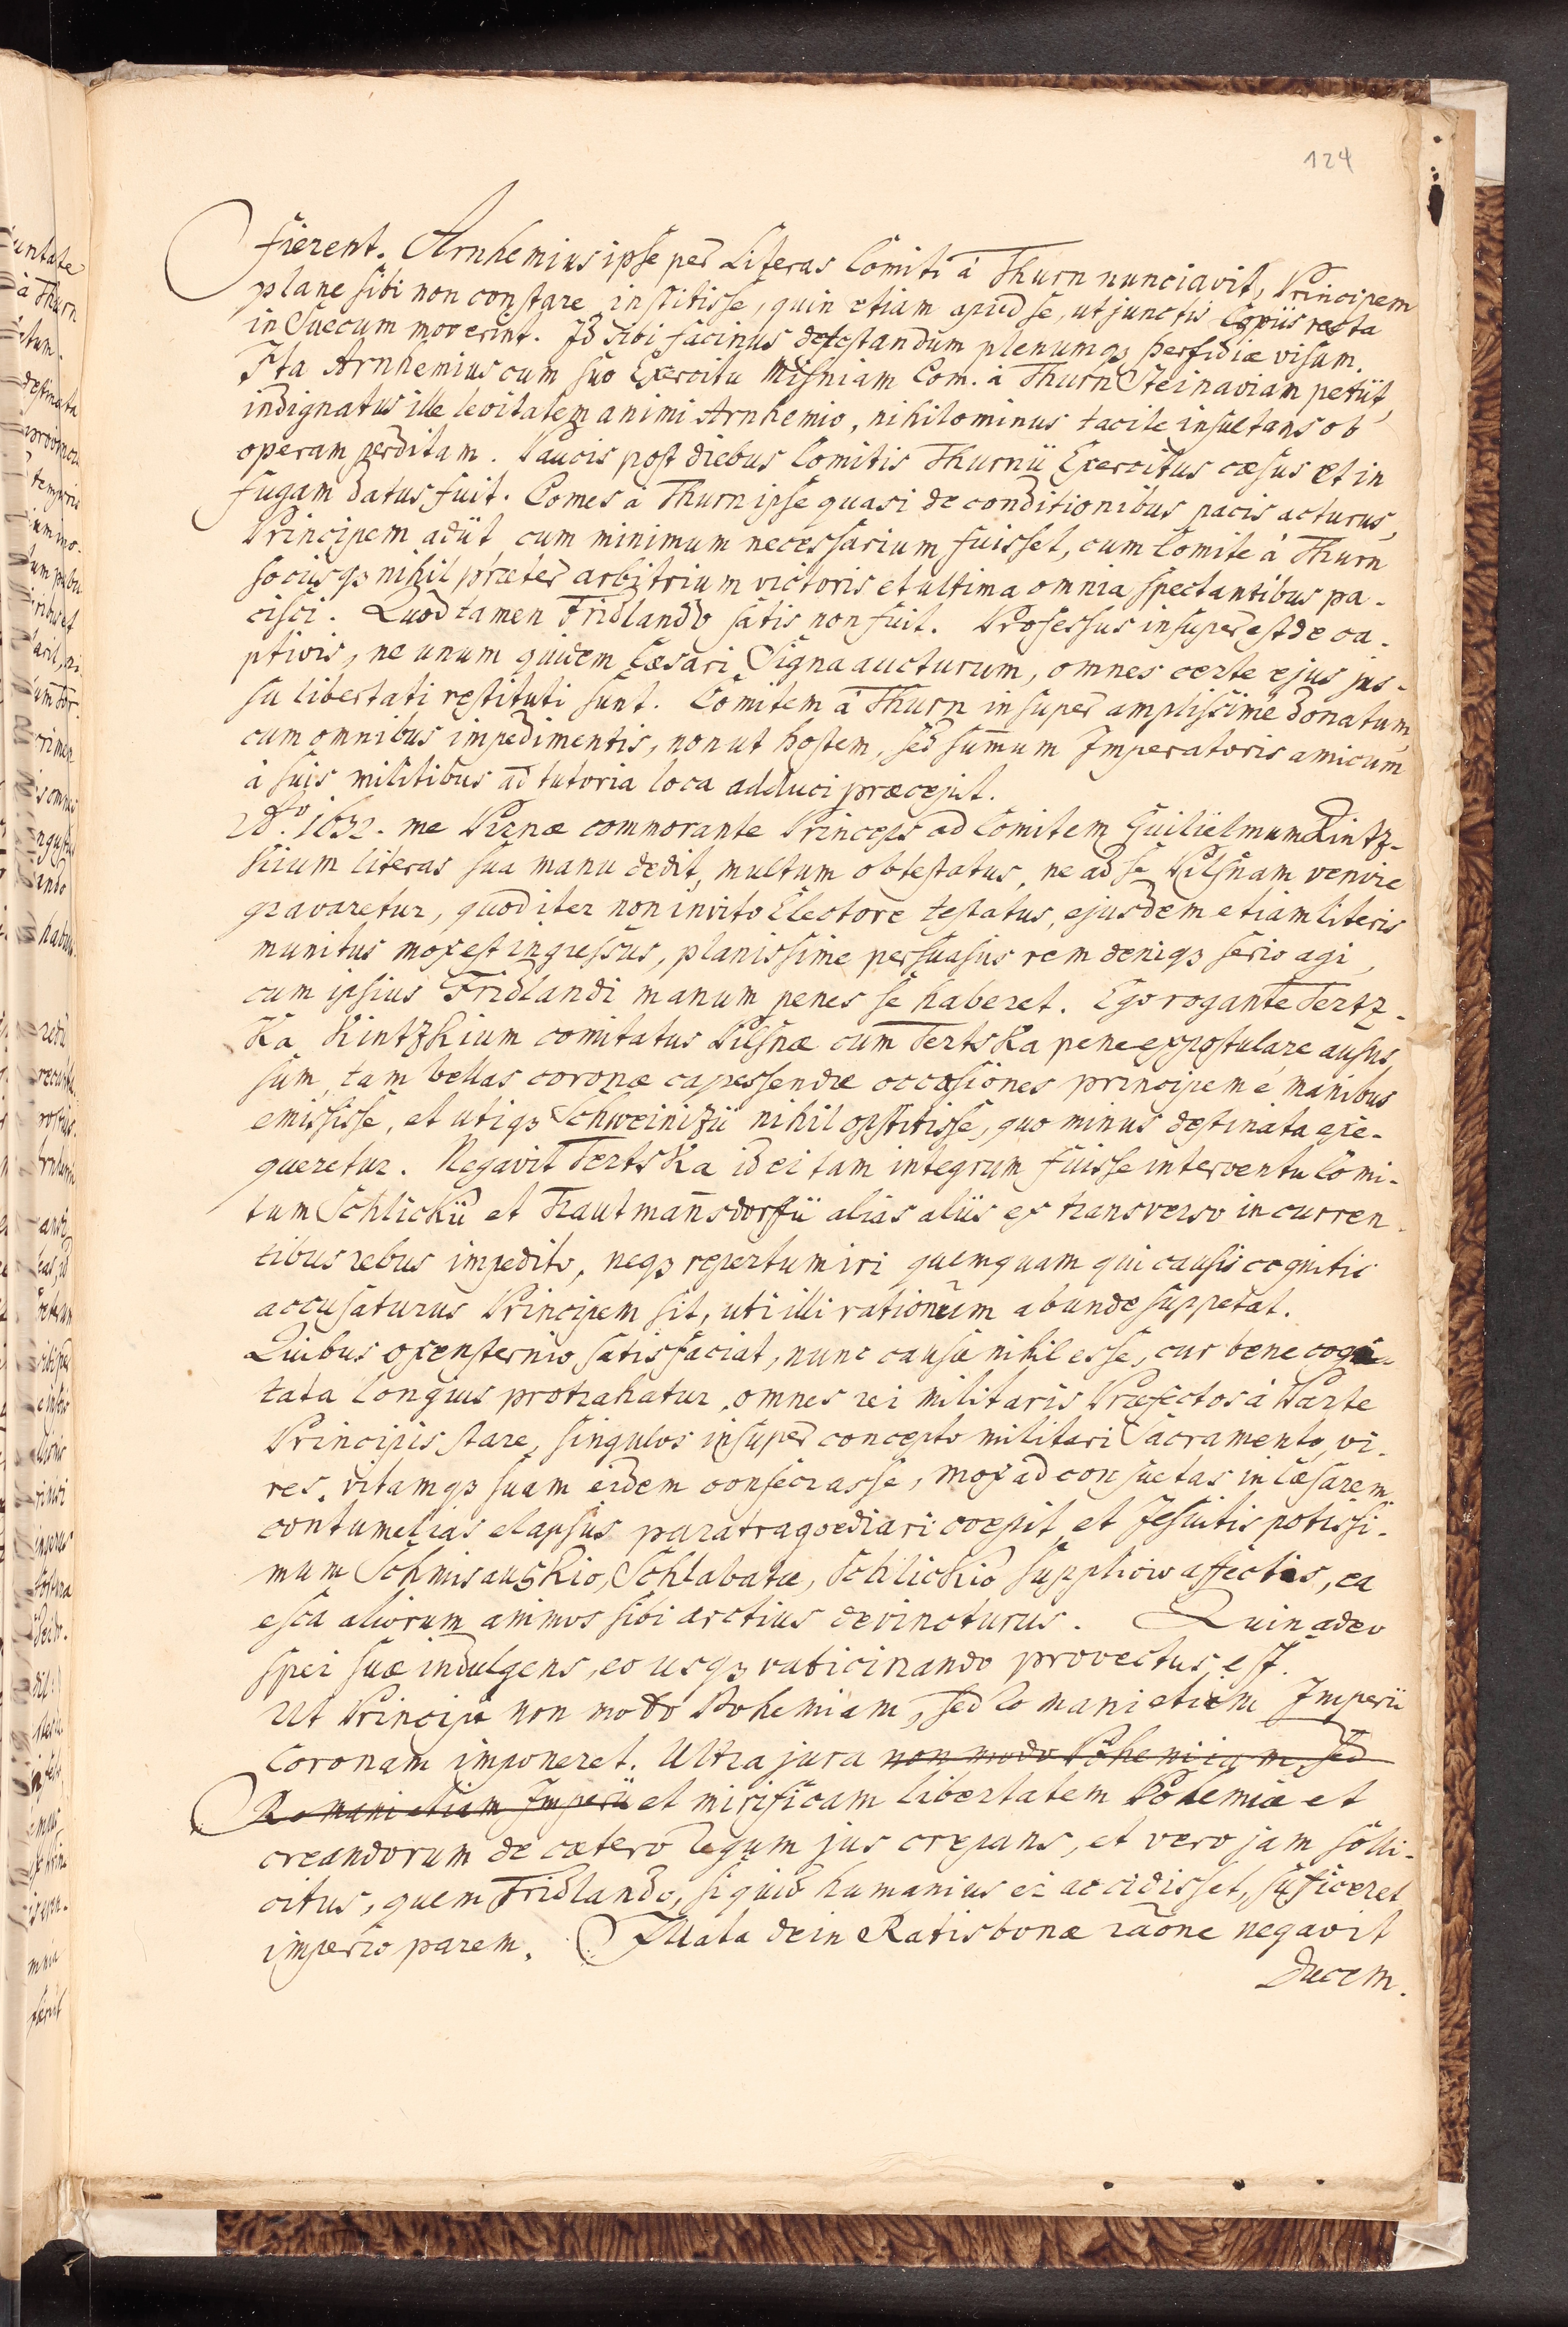 124
fierent. Arnhemius ipse per Literas Comiti à Thurn nunciavit, Principem
plane sibi non constare, institisse, quin etiam apud se, ut junctis Copiis recta
in Suecum moverint. Id sibi facinus detestandum plenumq3 perfidiæ visum.
Ita Arnhemius cum suo Exercitu Misniam Com. à Thurn Steinaviam petiit,
indignatus ille levitatem animi Arnhemio, nihilominus tacite insultans ob
operam perditam. Paucis post diebus Comitis Thurnii Exercitus cæsus et in
fugam datus fuit. Comes à Thurn ipse quasi de conditionibus pacis acturus,
Principem adiit, cum minimum necessarium fuisset, cum Comite à Thurn
sociisq3 nihil præter arbitrium victoris et ultima omnia spectantibus pa-
cisci. Quod tamen Fridlando satis non fuit. Professus insuper est de ca-
ptivis, ne unum quidem Cæsari Signa aucturum, omnes certe ejus jus-
su libertati restituti sunt. Comitem à Thurn insuper amplissime donatum,
cum omnibus impedimentis, non ut hostem, sed sum̄um Imperatoris amicum
à suis militibus ad tutoria loca adduci præcepit.
Ao. 1632. me Pirnæ commorante Princeps ad Comitem Guilielmum Kintz-
kium literas sua manu dedit, multum obtestatus, ne ad se Pilsnam venire
gravaretur, quod iter non invito Electore testatus, ejusdem etiam literis
munitus mox est ingressus, planissime persuasus rem deniq3 serio agi,
cum ipsius Fridlandi manum penes se haberet. Ego rogante Tertz-
ka Kintzkium comitatus Pilsnæ cum Tertska pene expostulare ausus
sum, tam bellas coronæ capessendæ occasiones principem é manibus
emisisse, et utiq3 Schweinizii nihil obstitisse, quo minus destinata exe-
queretur. Negavit Tertska id ei tam integrum fuisse interventu Comi-
tum Schlickii et Trautman̄sdorffii alias aliis ex transverso incurren-
tibus rebus impedito, neq3 repertum iri quemquam qui causis cognitis
accusaturus Principem sit, uti illi rationum abunde suppetat.
Quibus Oxensternio satisfaciat, nunc causæ nihil esse, cur bene cogi-
tata longius protrahatur, omnes rei militaris Præfectos à Parte
Principis stare, singulos insuper concepto militari Sacramento, vi-
res, vitamq3 suam eidem consecrasse, mox ad consuetas in Cæsarem
contumelias elapsus paratragoediari coepit, et Jesuitis potissi-
mum Schmisauskio, Schlabatæ, Schlickio suppliciis affectis, ea
esca aliorum animos sibi arctius devincturus. Quin adeo
spei suæ indulgens, eo usq3 vaticinando provectus est.
Ut Principi non modo Bohemiam, sed Romani etiam Imperii
Coronam imponeret. Ultra jura non modo Bohemiam, sed
Romani etiam Imperii et mirificam libertatem Bohemiæ et
creandorum de cætero Regum jus crepans, et vero jam solli-
citus, quem Fridlando, si quid humanius ei accidisset, sufficeret
imperio parem. Mala dein Ratisbonæ raōne negavit
Ducem.